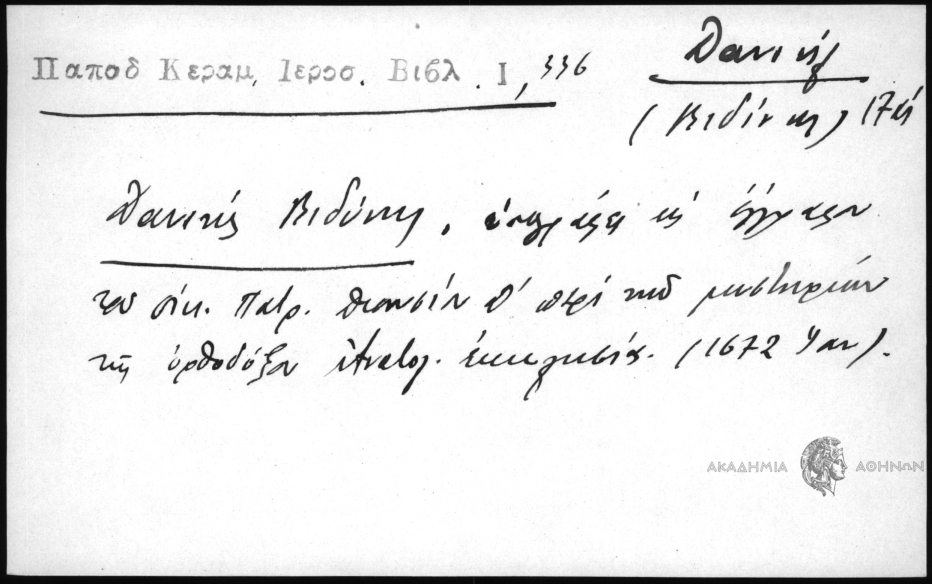 Παποδ Κεραμ. Ιεροσ. Βιβλ. Ι, 336
Δανιήλ
(Βιδύνης) 17ος
Δανιήλ Βιδύνης, υπογράφει εις έγγραφον
του οικ. Πατρ. Διονυσίου Δ' περί των μυστηρίων
της ορθοδόξου Ανατολ. εκκλησίας. (1672 Ιαν).
ΑΚΑΔΗΜΙΑ ΑΘΗΝΩΝ